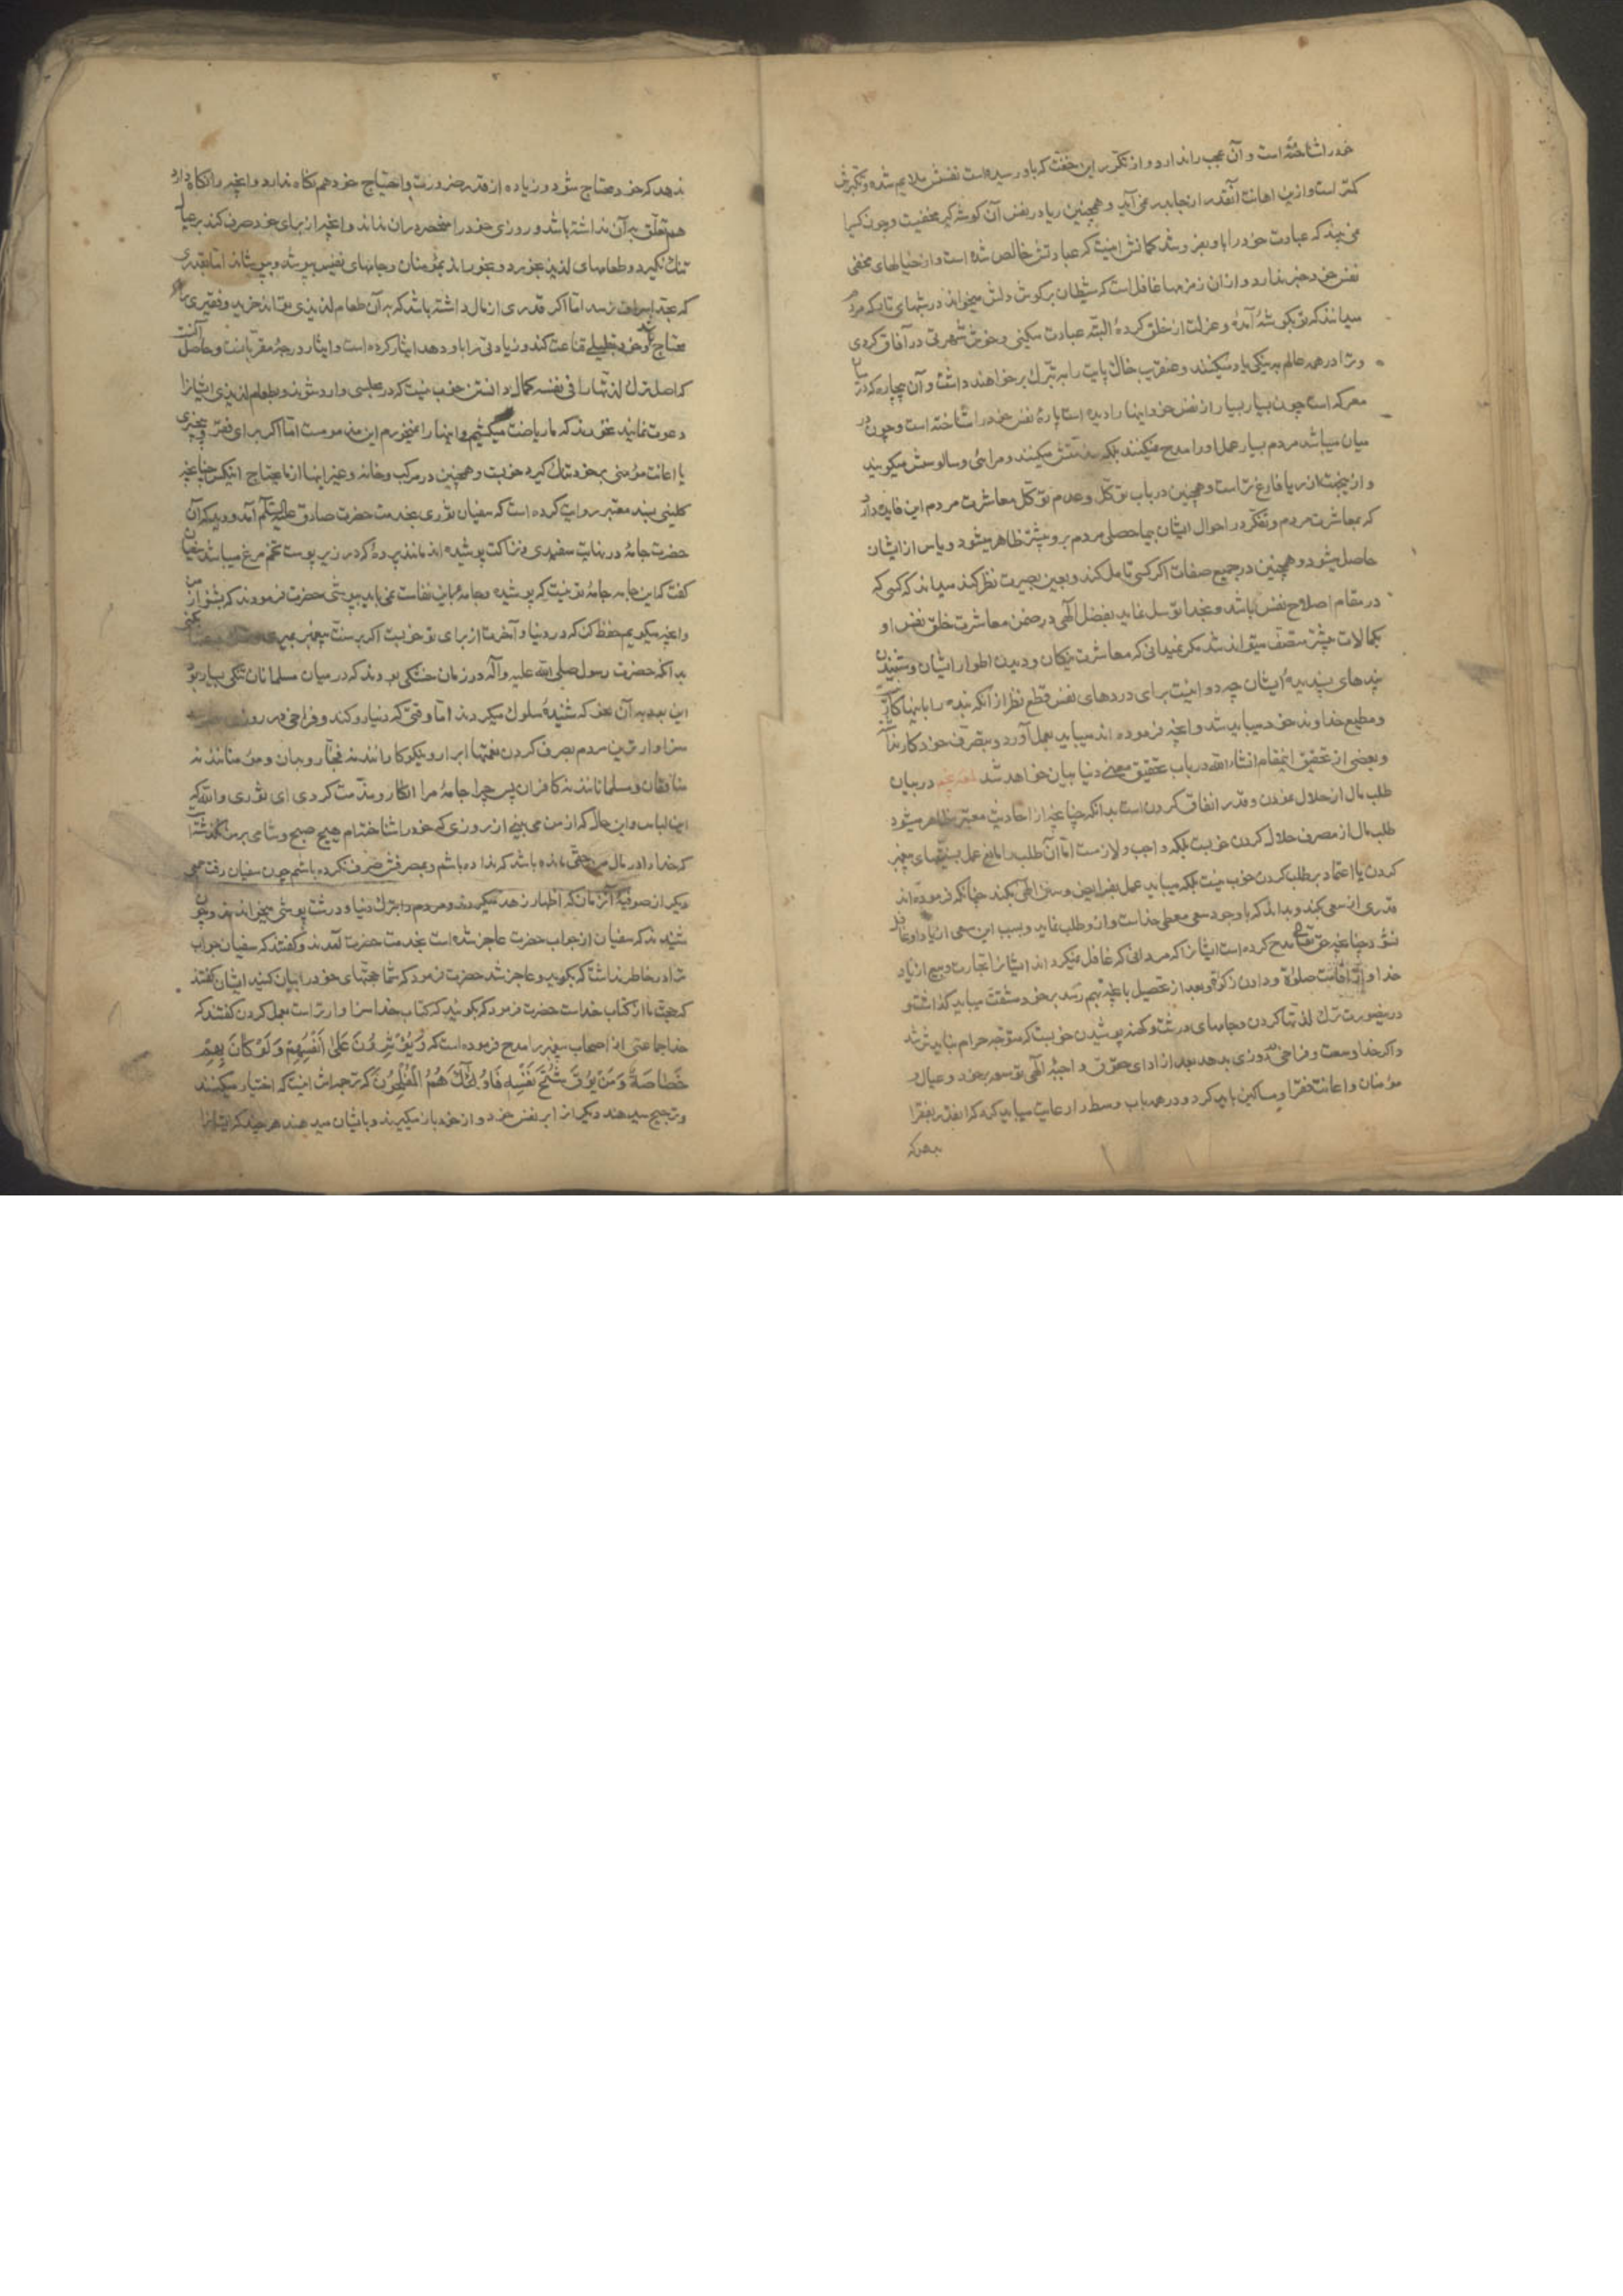 خود را شناخته است و آن عجب را ندارد و از تکرر این خفت که باو رسیده است نفسش ملایم شده و تکبرش
کمتر است و ازین اهانت آنقدر از جا بدر نمی‌آید و همچنین ریا در نفس آن گوشه گیر مخفیست و چون کسی را
نمی‌بیند که عبادت خود را باو بفروشد گمانش اینست که عبادتش خالص شده است و از خیالهای مخفی
نفس خود خبر ندارد و از آن زمزمها غافل است که شیطان بر گوش دلش میخواند در شبهای تار که مردم
میدانند که تو بگوشهٔ آمدهٔ و عزلت از خلق کردهٔ البته عبادت میکنی و خوش شهرتی در آفاق کردی
و ترا در همه عالم به نیکی یاد میکنند و عنقریب خاک پایت را به تبرک بر خواهند داشت و آن بیچاره که در میان
معرکه است چون بسیار بسیار از نفس خود اینها را دیده است پارهٔ نفس خود را شناخته است و چون در
میان میباشد مردم بسیار عمل او را مدح نمیکنند بلکه مذمتش میکنند و مرائی و سالوسش میگویند
و ازینجهت از ریا فارغ تر است و همچنین در باب توکل و عدم توکل معاشرت مردم این فایده دارد
که بمعاشرت مردم و تفکر در احوال ایشان بیحاصلی مردم برو بیشتر ظاهر میشود و یاس از ایشان
حاصل میشود و همچنین در جمیع صفات اگر کسی تامل کند و بعین بصیرت نظر کند میداند که کسی که
در مقام اصلاح نفس باشد و بخدا توسل نماید بفضل الهی در ضمن معاشرت خلق نفس او
بکمالات بیشتر متصف میتواند شد مگر نمیدانی که معاشرت نیکان و دیدن اطوار ایشان و شنیدن
پندهای پسندیدهٔ ایشان چه دوائیست برای دردهای نفس قطع نظر از آنکه بنده را باینها کار نیست
و مطیع خداوند خود میباید شد و آنچه فرموده اند میباید بعمل آورد و بتصرف خود کار نداشته
و بعضی از تحقیق اینمقام انشاء الله در باب تحقیق معنی دنیا بیان خواهد شد در بیان
طلب مال از حلال نمودن و قدر انفاق کردن است بدانکه چنانچه از احادیث معتبره ظاهر میشود
طلب مال از مصرف حلال کردن خوبست بلکه واجب و لازمست اما آن طلب را مانع عمل بسنتهای پیغمبر
کردن یا اعتماد بر طلب کردن خوب نیست بلکه میباید عمل بفرایض و سنن الهی بکند چنانکه فرموده‌اند
قدری از سعی بکند و بداند که با وجود سعی معطی خداست و ازو طلب نماید و بسبب این سعی از یاد او غافل
نشود چنانچه حق تعالی مدح کرده است ایشانرا که مردانی که غافل نمیگرداند ایشانرا تجارت و بیع از یاد
خدا و از اقامت صلوة و دادن زکوة و بعد از تحصیل بآنچه بهم رسد بر خود مشقت میباید گذاشت و
درینصورت ترک لذتها کردن و جامهای درشت و کهنه پوشیدن خوبست که متوجه حرام نباید شد
و اگر خدا وسعت و فراخی روزی بدهد بعد از ادای حقوق واجبهٔ الهی توسعه بر خود و عیال و
مؤمنان و اعانت فقرا و مساکین باید کرد و در همه باب وسط را رعایت میباید کرد که آنقدر بفقرا
بدهد که
ندهد که خود محتاج شود و زیاده از قدر ضرورت و احتیاج خود هم نگاه ندارد و آنچه را نگاه دارد
هم تعلق به آن نداشته باشد و روزی خود را منحصر در آن نداند و آنچه از برای خود صرف کند بر عیال
تنگ نگیرد و طعامهای لذیذ بخورد و بخوراند بمؤمنان و جامهای نفیس بپوشد و بپوشاند اما بقدری
که بحد اسراف نرسد اما اگر قدری از مال داشته باشد که به آن طعام لذیذی تواند خرید و فقیری باو
محتاج باشد و خود بقلیلی قناعت کند و زیادتی را باو دهد ایثار کرده است و ایثار درجهٔ مقربانست و حاصل آنست
که اصل ترک لذتها را فی نفسه کمال دانستن خوب نیست که در مجلسی وارد شوند و طعام لذیذی ایشانرا
دعوت نمایند نخورند که ما ریاضت میکشیم و اینها را نمیخوریم این مذمومست اما اگر برای فقر و بی‌چیزی
یا اعانت مؤمنی بر خود تنگ گیرد خوبست و همچنین در مرکب و خانه و غیر اینها از ما یحتاج اینکس چنانچه
کلینی بسند معتبر روایت کرده است که سفیان ثوری بخدمت حضرت صادق علیه السلام آمد و دید که آن
حضرت جامهٔ در نهایت سفیدی و نزاکت پوشیده اند مانند پردهٔ که در زیر پوست تخم مرغ میباشد سفیان
گفت که این جامه جامهٔ تو نیست که پوشیدهٔ و جامهٔ باین نفاست نمی‌باید بپوشی حضرت فرمودند که بشنو از من
و آنچه میگویم حفظ کن که در دنیا و آخرت از برای تو خوبست اگر بر سنت پیغمبر بمیری
بدانکه حضرت رسول صلی الله علیه وآله در زمان خشکی بودند که در میان مسلمانان تنگی بسیار بود
ازین جهت به آن نحو که شنیدهٔ سلوک میکردند اما وقتی که دنیا رو کند و فراخی در روزی
سزاوارترین مردم بصرف کردن نعمتها ابرار و نیکوکارانند نه فجار و بدان و مؤمنانند نه
منافقان و مسلمانانند نه کافران پس چرا جامهٔ مرا انکار و مذمت کردی ای ثوری والله که
این لباس و این حال که از من می بینی از روزی که خود را شناخته‌ام هیچ صبح و شامی بر من نگذشته است
که خدا را در مال من حقی مانده باشد که نداده باشم و بمصرفش صرف نکرده باشم چون سفیان رفت جمعی
دیگر از صوفیهٔ آنزمان که اظهار زهد میکردند و مردم را بترک دنیا و درشت پوشی میخواندند و چون
شنیدند که سفیان از جواب حضرت عاجز شده است بخدمت حضرت آمدند و گفتند که سفیان جواب
ترا در خاطر نداشت که بگوید و عاجز شد حضرت فرمود که شما حجتهای خود را بیان کنید ایشان گفتند
که حجت ما از کتاب خداست حضرت فرمود که بگوئید که کتاب خدا سزاوارتر است بعمل کردن گفتند که
خدا جماعتی از اصحاب پیغمبر را مدح فرموده است که وَيُؤْثِرُونَ عَلَىٰ أَنْفُسِهِمْ وَلَوْ كَانَ بِهِمْ
خَصَاصَةٌ وَمَنْ يُوقَ شُحَّ نَفْسِهِ فَأُولَٰئِكَ هُمُ الْمُفْلِحُونَ که ترجمه‌اش اینست که اختیار میکنند
و ترجیح میدهند دیگران را بر نفس خود و از خود باز میگیرند و بایشان میدهند هر چند که ایشانرا